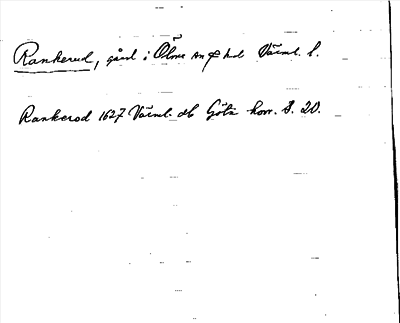 Rankerud, gård i Ölme sn o hd Värml. l.
Rankerod 1627 Värml. db Göta horr. s. 20.